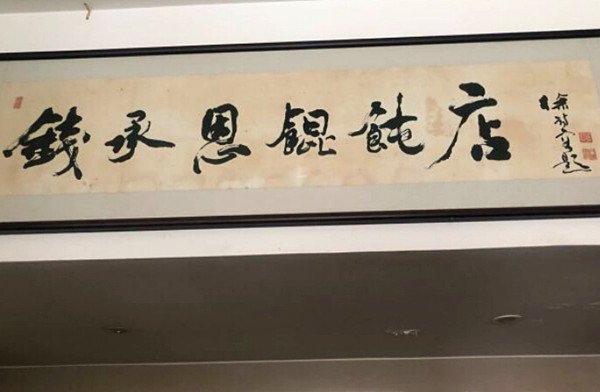 錢承恩餛飩店